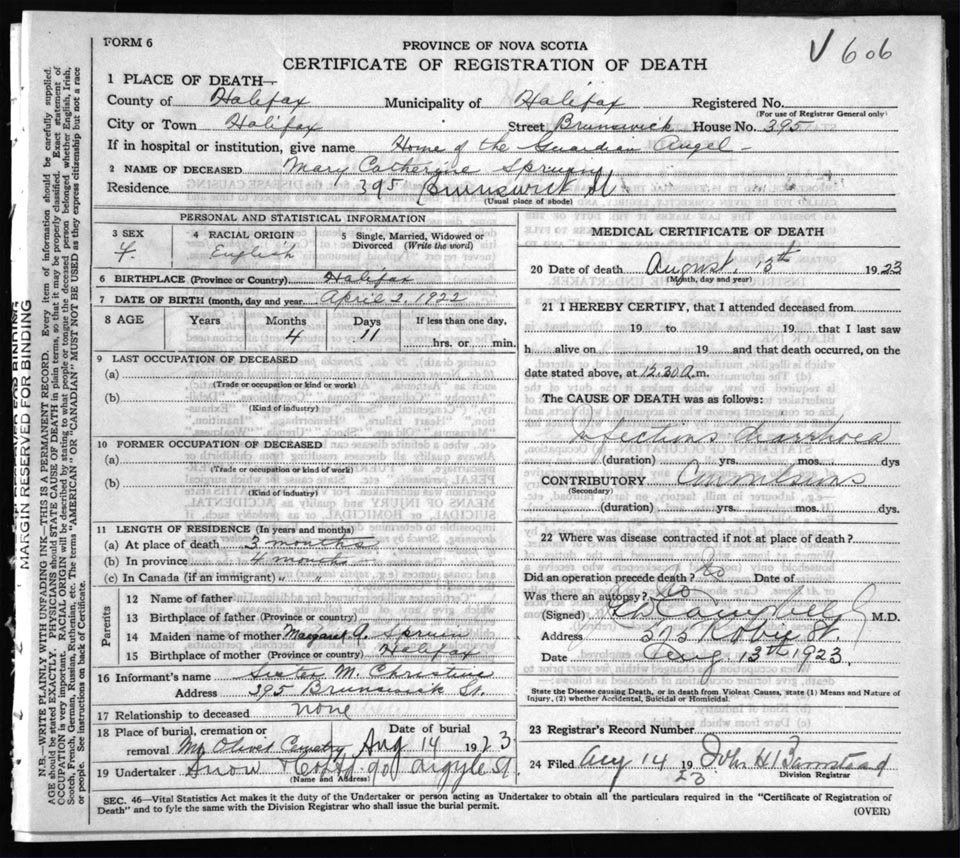 FORM 6
V 606
PROVINCE OF NOVA SCOTIA
CERTIFICATE OF REGISTRATION OF DEATH
1 PLACE OF DEATH—
County of Halifax Municipality of Halifax Registered No.
(For use of Registrar General only)
City or Town Halifax Street Brunswick House No. 395
If in hospital or institution, give name Home of the Guardian Angel -
2 NAME OF DECEASED Mary Catherine
Residence 395 Brunswick St
(Usual place of abode)
PERSONAL AND STATISTICAL INFORMATION
3 SEX 4 RACIAL ORIGIN 5 Single, Married, Widowed or
Divorced (Write the word)
F. English
6 BIRTHPLACE (Province or Country) Halifax
7 DATE OF BIRTH (month, day and year) April 2, 1922
8 AGE Years Months Days If less than one day,
4 11 hrs. or min.
9 LAST OCCUPATION OF DECEASED
(a)
(Trade or occupation or kind or work)
(b)
(Kind of industry)
10 FORMER OCCUPATION OF DECEASED
(a)
(Trade or occupation or kind of work)
(b)
(Kind of industry)
11 LENGTH OF RESIDENCE (In years and months)
(a) At place of death 3 months
(b) In province 4 months
(c) In Canada (if an immigrant) " "
Parents
12 Name of father
13 Birthplace of father (Province or country)
14 Maiden name of mother Margaret A.
15 Birthplace of mother (Province or country) Halifax
16 Informant's name Sister M. Christine
Address 395 Brunswick St.
17 Relationship to deceased none
18 Place of burial, cremation or Date of burial
removal Mt Olivet Cemetry Aug 14 1923
19 Undertaker Snow & Co Ltd. 90 Argyle St.
(Name and Address)
MEDICAL CERTIFICATE OF DEATH
20 Date of death August, 13th 1923
(Month, day and year)
21 I HEREBY CERTIFY, that I attended deceased from
19 to 19 that I last saw
h alive on 19 and that death occurred, on the
date stated above, at 12.30 a.m.
The CAUSE OF DEATH was as follows:
Infectious diarrhoea
(duration) yrs. mos. dys
CONTRIBUTORY Convulsions
(Secondary)
(duration) yrs. mos. dys.
22 Where was disease contracted if not at place of death?
Did an operation precede death? No Date of
Was there an autopsy? No
(Signed) Campbell M.D.
Address Robie St.
Date Aug. 13th 1923.
State the Disease causing Death, or in death from Violent Causes, state (1) Means and Nature of
Injury, (2) whether Accidental, Suicidal or Homicidal.
23 Registrar's Record Number
24 Filed Aug 14 1923 John H Barnstead
Division Registrar
SEC. 46—Vital Statistics Act makes it the duty of the Undertaker or person acting as Undertaker to obtain all the particulars required in the "Certificate of Registration of
Death" and to fyle the same with the Division Registrar who shall issue the burial permit.
(OVER)
MARGIN RESERVED FOR BINDING
N.B.—WRITE PLAINLY WITH UNFADING INK—THIS IS A PERMANENT RECORD. Every item of information should be carefully supplied.
AGE should be stated EXACTLY. PHYSICIANS should STATE CAUSE OF DEATH in plain terms, so that it may be properly classified. Exact statement of
OCCUPATION is very important. RACIAL ORIGIN will be described by stating to what people or tongue the deceased person belonged whether English, Irish,
Scotch, French, German, Russian, Ruthenian, etc. The terms "AMERICAN" or "CANADIAN" MUST NOT BE USED as they express citizenship but not a race
or people. See instructions on back of Certificate.